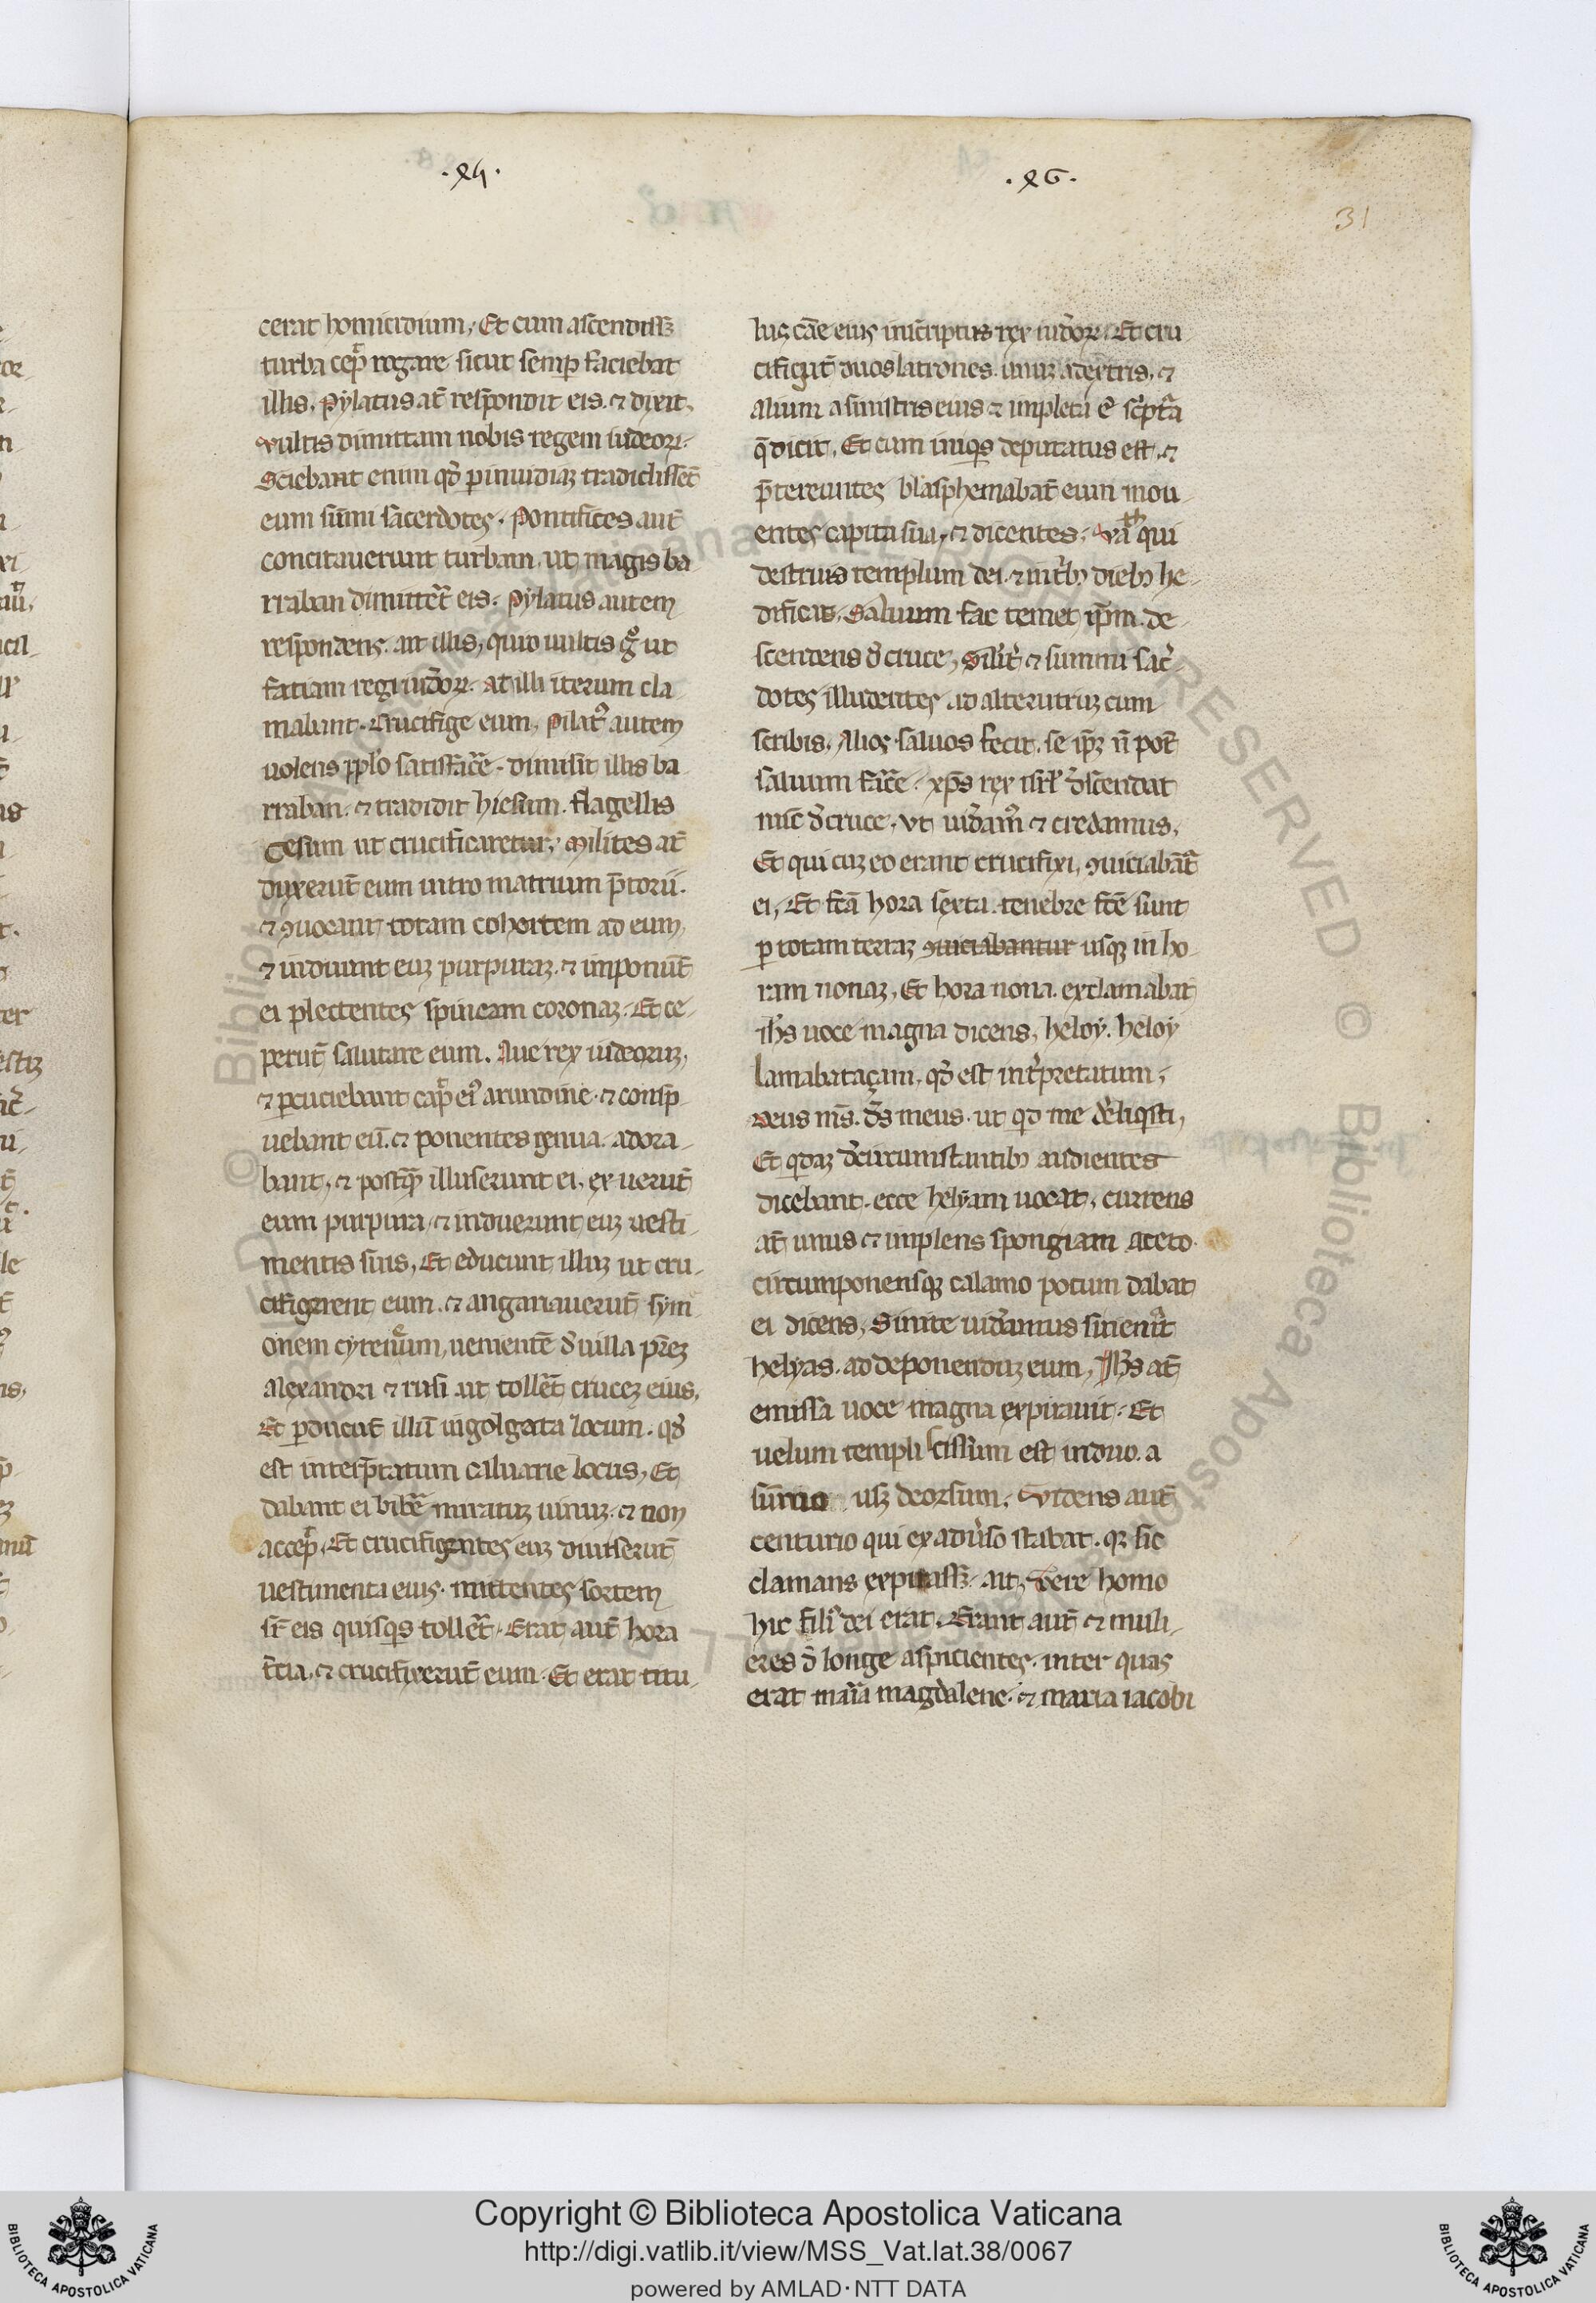 31
cerat homicidium, Et cum ascendissꝫ
turba cep̄ rogare sicut semꝑ faciebat
illis, Pylatus at̄ respondit eis. ⁊ dixit,
vultis dimittam uobis regem iudeoꝝ.
Sciebant enim qd̄ ꝑ inuidiaꝫ tradidissēt
eum sūmi sacerdotes. Pontifices aut̄
concitauerunt turbam. ut magis ba
rraban dimittēt eis. Pylatus autem
respondens. ait illis, quid uultis gͦ ut
fatiam regi iud̄oꝝ. at illi iterum cla
mabant. Crucifige eum, Pilatꝰ autem
uolens pplo satisfac̄e. dimisit illis ba
rraban. ⁊ tradidit hiesum. flagellis
cesum ut crucificaretur, Milites at̄
duxerūt eum intro matrium p̄torii.
⁊ ꝯuocant totam cohortem ad eum,
⁊ induunt euꝫ purpuraꝫ. ⁊ imponūt
ei plectentes spineam coronaꝫ. Et ce
perūt salutare eum. Aue rex iudeoruꝫ,
⁊ ꝑcuciebant cap̄ eiꝰ arundine. ⁊ consp
uebant eū. ⁊ ponentes genua. adora
bant, ⁊ postq̄ illuserunt ei, exuerūt
eum purpura, ⁊ induerunt euꝫ uesti
mentis suis, Et educunt illuꝫ ut cru
cifigerent eum. ⁊ angariauerūt sym
onem cyreneum, uenientē d̄ uilla p̄reꝫ
Alexandri ⁊ rufi ut tollēt cruceꝫ eius,
Et ꝑducūt illū in golgata locum. qd̄
est interp̄tatum caluarie locus, Et
dabant ei bib̄e mirratuꝫ uinuꝫ. ⁊ non
accep̄, Et crucifigentes euꝫ diuiserūt
uestimenta eius. mittentes sortem
sr̄ eis quisqͥs tollēt. Erat aut̄ hora
t̄cia, ⁊ crucifixerūt eum. Et erat titu
lus cāe eius inscriptus rex iud̄oꝝ. Et cru
cifigūt duos latrones. unuꝫ adextris, ⁊
alium a sinistris eius ⁊ impleta ē sc̄pt̄a
q̄ dicit, Et cum iniqͥs deputatus est. ⁊
p̄tereuntes blasphemabāt eum mou
entes capita sua, ⁊ dicentes. va qui
destruis templum dei. ⁊ in t̄bꝫ diebꝫ he
dificas. Saluum fac temet ip̄m. de
scendens d̄ cruce, Silīt ⁊ summi sac̄
dotes illudentes ad alterutruꝫ cum
scribis. Alios saluos fecit. se ip̄ꝫ n̄ pot̄
saluum fac̄e. xp̄s rex isrl̄ d̄scendat
nūc d̄ cruce. vt uid̄amꝰ ⁊ credamus,
Et qui cuꝫ eo erant crucifixi, ꝯuiciabāt̄
ei, Et fc̄a hora sexta. tenebre fc̄e sunt
ꝑ totam terraꝫ ꝯuiciabantur usqꝫ in ho
ram nonaꝫ, Et hora nona. exclamabat
ih̄s uoce magna dicens, heloy. heloy
lamabatacani, qd̄ est int̄pretatum,
deus m̄s. d̄s meus. ut qͥd me d̄reliqͥsti,
Et qͥdaꝫ d̄ circumstantibꝫ audientes
dicebant. ecce helyam uocat, currens
at̄ unus ⁊ implens spongiam aceto.
circumponensqꝫ calamo potum dabat
ei dicens, Sinite uid̄amus si ueniat
helyas. ad deponenduꝫ eum, Ih̄s at̄
emissa uoce magna expirauit. Et
velum templi scissum est in duo. a
sūmo usqꝫ deorsum. Videns aut̄
centurio qui ex adūso stabat. qꝫ sic
clamans expirassꝫ. ait, vere homo
hic filiꝰ dei erat, Erant aut̄ ⁊ muli
eres d̄ longe aspicientes. inter quas
erat maria magdalene. ⁊ maria iacobi
© Biblioteca Apostolica Vaticana ALL RIGHTS RESERVED
Copyright © Biblioteca Apostolica Vaticana
http://digi.vatlib.it/view/MSS_Vat.lat.38/0067
powered by AMLAD·NTT DATA
BIBLIOTECA APOSTOLICA VATICANA
BIBLIOTECA APOSTOLICA VATICANA